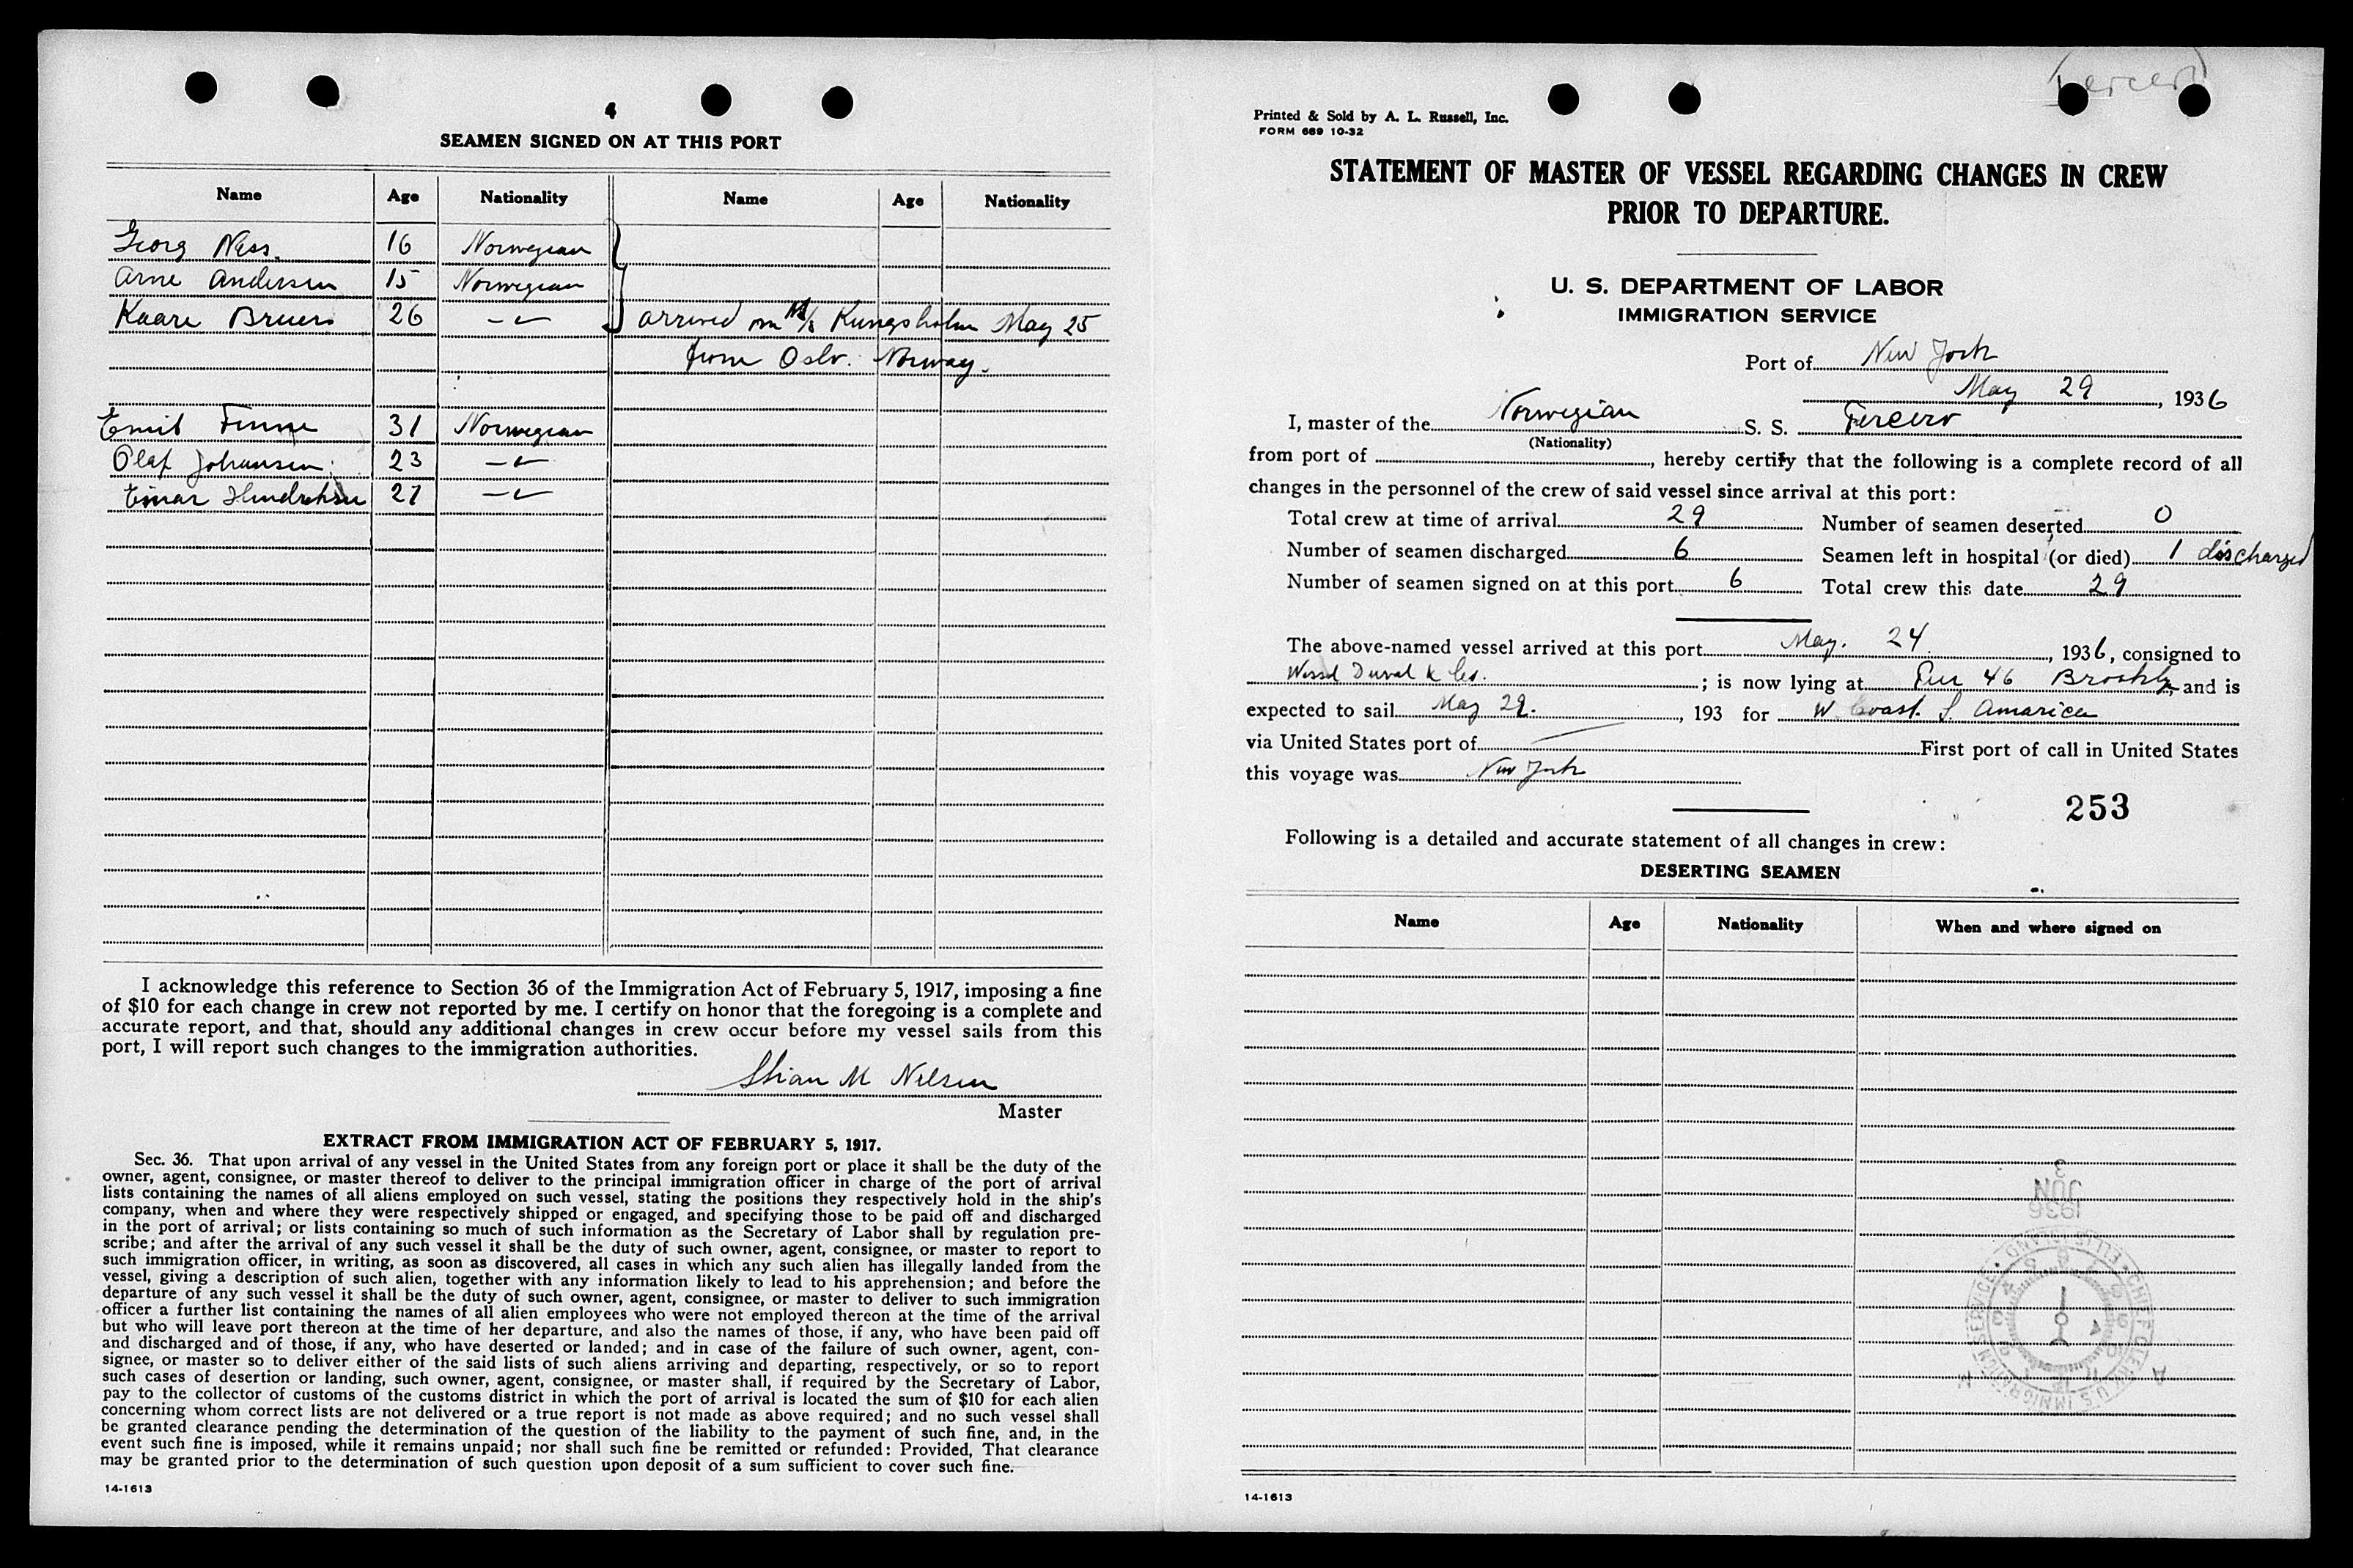 4
SEAMEN SIGNED ON AT THIS PORT
Name Age Nationality Name Age Nationality
Georg Ness. 16 Norwegian
Arne Andersen 15 Norwegian
Kaare Bruers 26 -"- arrived on M/S Kungsholm May 25
from Oslo. Norway.
Emil 31 Norwegian
Olaf Johansen 23 -"-
Einar 27 -"-
I acknowledge this reference to Section 36 of the Immigration Act of February 5, 1917, imposing a fine
of $10 for each change in crew not reported by me. I certify on honor that the foregoing is a complete and
accurate report, and that, should any additional changes in crew occur before my vessel sails from this
port, I will report such changes to the immigration authorities.
M Nelsen
Master
EXTRACT FROM IMMIGRATION ACT OF FEBRUARY 5, 1917.
Sec. 36. That upon arrival of any vessel in the United States from any foreign port or place it shall be the duty of the
owner, agent, consignee, or master thereof to deliver to the principal immigration officer in charge of the port of arrival
lists containing the names of all aliens employed on such vessel, stating the positions they respectively hold in the ship's
company, when and where they were respectively shipped or engaged, and specifying those to be paid off and discharged
in the port of arrival; or lists containing so much of such information as the Secretary of Labor shall by regulation pre-
scribe; and after the arrival of any such vessel it shall be the duty of such owner, agent, consignee, or master to report to
such immigration officer, in writing, as soon as discovered, all cases in which any such alien has illegally landed from the
vessel, giving a description of such alien, together with any information likely to lead to his apprehension; and before the
departure of any such vessel it shall be the duty of such owner, agent, consignee, or master to deliver to such immigration
officer a further list containing the names of all alien employees who were not employed thereon at the time of the arrival
but who will leave port thereon at the time of her departure, and also the names of those, if any, who have been paid off
and discharged and of those, if any, who have deserted or landed; and in case of the failure of such owner, agent, con-
signee, or master so to deliver either of the said lists of such aliens arriving and departing, respectively, or so to report
such cases of desertion or landing, such owner, agent, consignee, or master shall, if required by the Secretary of Labor,
pay to the collector of customs of the customs district in which the port of arrival is located the sum of $10 for each alien
concerning whom correct lists are not delivered or a true report is not made as above required; and no such vessel shall
be granted clearance pending the determination of the question of the liability to the payment of such fine, and, in the
event such fine is imposed, while it remains unpaid; nor shall such fine be remitted or refunded: Provided, That clearance
may be granted prior to the determination of such question upon deposit of a sum sufficient to cover such fine.
14-1613
Tercero
Printed & Sold by A. L. Russell, Inc.
FORM 689 10-32
STATEMENT OF MASTER OF VESSEL REGARDING CHANGES IN CREW
PRIOR TO DEPARTURE.
U. S. DEPARTMENT OF LABOR
IMMIGRATION SERVICE
Port of New York
May 29, 1936
I, master of the Norwegian S. S. Tercero
(Nationality)
from port of , hereby certify that the following is a complete record of all
changes in the personnel of the crew of said vessel since arrival at this port:
Total crew at time of arrival 29 Number of seamen deserted 0
Number of seamen discharged 6 Seamen left in hospital (or died) 1 discharged
Number of seamen signed on at this port 6 Total crew this date 29
The above-named vessel arrived at this port May. 24, 1936, consigned to
Wessel Duval & Co. ; is now lying at Pier 46 Brooklyn and is
expected to sail May 29., 193 for W. Coast. S. Amarica
via United States port of First port of call in United States
this voyage was New York
253
Following is a detailed and accurate statement of all changes in crew:
DESERTING SEAMEN
Name Age Nationality When and where signed on
3
JUN
1936
CHIEF CLERK U.S. IMMIGRATION SERVICE • ELLIS ISLAND •
14-1613